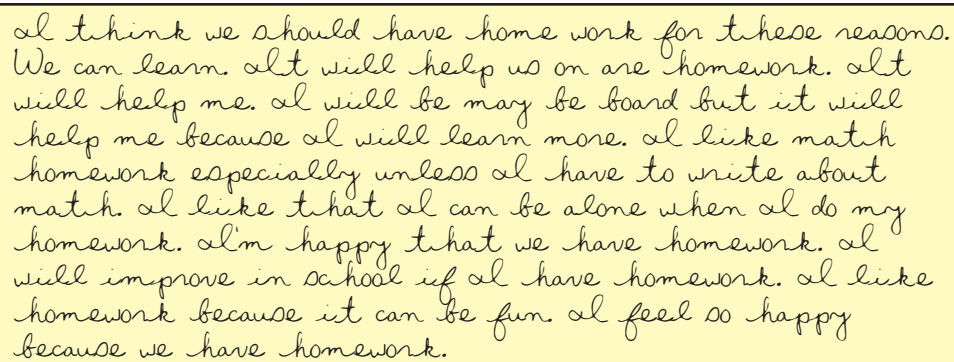 I think we should have home work for these reasons.
We can learn. It will help us on are homework. It
will help me. I will be may be board but it will
help me because I will learn more. I like match
homework especially unless I have to write about
match. I like that I can be alone when I do my
homework. I'm happy that we have homework. I
will improve in school if I have homework. I like
homework because it can be fun. I feel so happy
because we have homework.